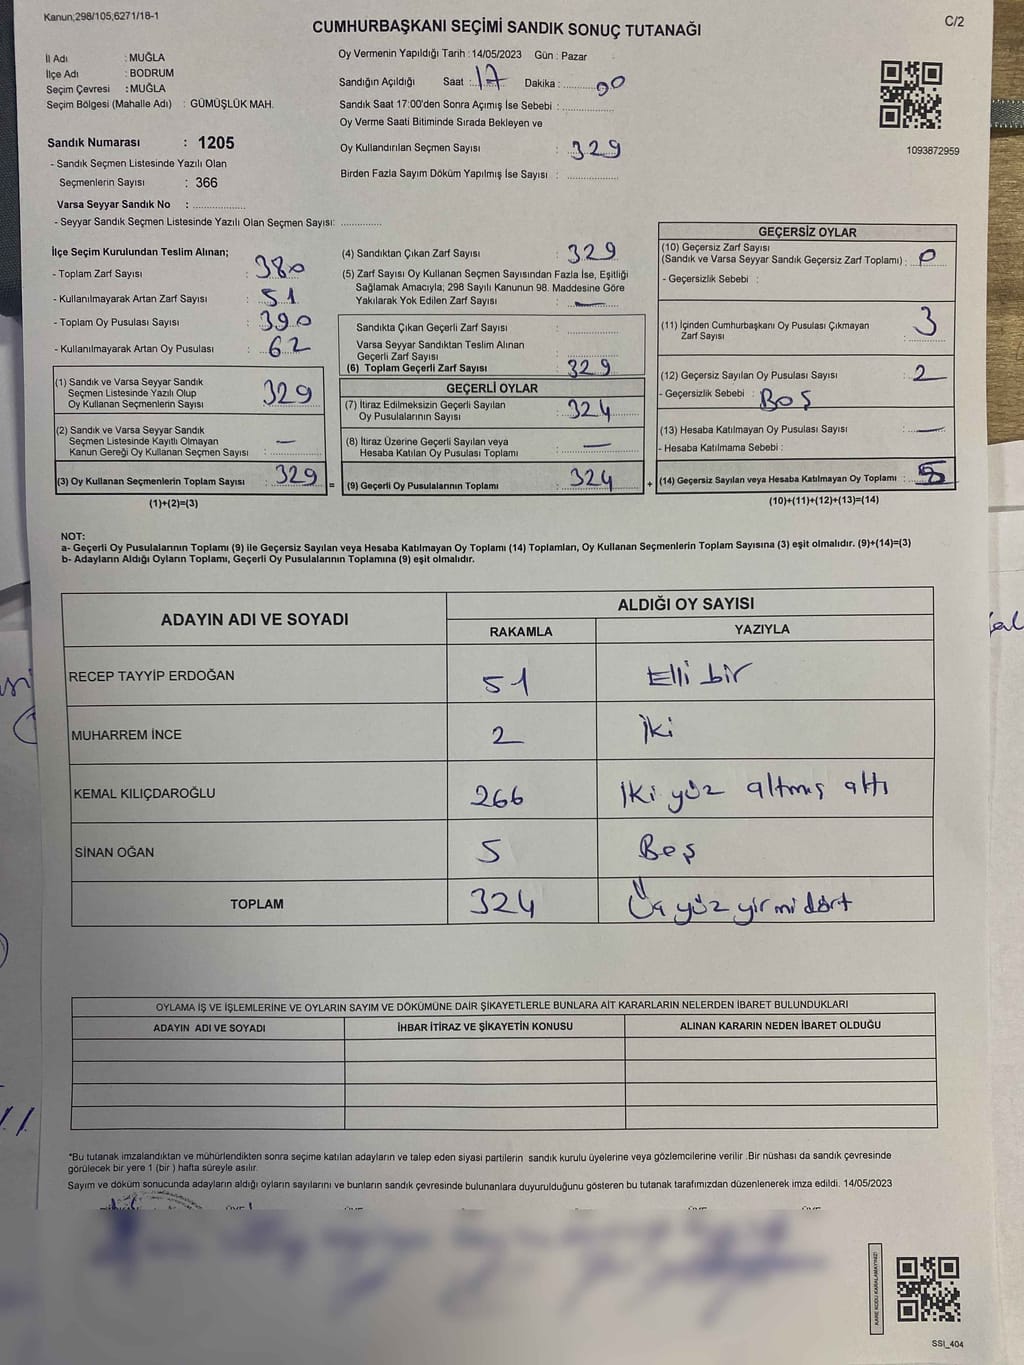 Kanun;298/105;6271/18-1
C/2
CUMHURBAŞKANI SEÇİMİ SANDIK SONUÇ TUTANAĞI
İl Adı : MUĞLA
İlçe Adı : BODRUM
Seçim Çevresi : MUĞLA
Seçim Bölgesi (Mahalle Adı) : GÜMÜŞLÜK MAH.
Sandık Numarası : 1205
- Sandık Seçmen Listesinde Yazılı Olan
Seçmenlerin Sayısı : 366
Varsa Seyyar Sandık No : ..................
- Seyyar Sandık Seçmen Listesinde Yazılı Olan Seçmen Sayısı: ..............
Oy Vermenin Yapıldığı Tarih : 14/05/2023 Gün : Pazar
Sandığın Açıldığı Saat : 17 Dakika : 00
Sandık Saat 17:00'den Sonra Açımış İse Sebebi : ..................
Oy Verme Saati Bitiminde Sırada Bekleyen ve
Oy Kullandırılan Seçmen Sayısı : 329
Birden Fazla Sayım Döküm Yapılmış İse Sayısı : ..................
1093872959
İlçe Seçim Kurulundan Teslim Alınan;
- Toplam Zarf Sayısı : 380
- Kullanılmayarak Artan Zarf Sayısı : 51
- Toplam Oy Pusulası Sayısı : 390
- Kullanılmayarak Artan Oy Pusulası : 62
(1) Sandık ve Varsa Seyyar Sandık
Seçmen Listesinde Yazılı Olup
Oy Kullanan Seçmenlerin Sayısı 329
(2) Sandık ve Varsa Seyyar Sandık
Seçmen Listesinde Kayıtlı Olmayan
Kanun Gereği Oy Kullanan Seçmen Sayısı : —
(3) Oy Kullanan Seçmenlerin Toplam Sayısı : 329
(1)+(2)=(3)
=
(4) Sandıktan Çıkan Zarf Sayısı : 329
(5) Zarf Sayısı Oy Kullanan Seçmen Sayısından Fazla İse, Eşitliği
Sağlamak Amacıyla; 298 Sayılı Kanunun 98. Maddesine Göre
Yakılarak Yok Edilen Zarf Sayısı : —
Sandıkta Çıkan Geçerli Zarf Sayısı : ..................
Varsa Seyyar Sandıktan Teslim Alınan
Geçerli Zarf Sayısı : ..................
(6) Toplam Geçerli Zarf Sayısı : 329
GEÇERLİ OYLAR
(7) İtiraz Edilmeksizin Geçerli Sayılan
Oy Pusulalarının Sayısı : 324
(8) İtiraz Üzerine Geçerli Sayılan veya
Hesaba Katılan Oy Pusulası Toplamı : —
(9) Geçerli Oy Pusulalarının Toplamı : 324
+
GEÇERSİZ OYLAR
(10) Geçersiz Zarf Sayısı
(Sandık ve Varsa Seyyar Sandık Geçersiz Zarf Toplamı) : 0
- Geçersizlik Sebebi :
(11) İçinden Cumhurbaşkanı Oy Pusulası Çıkmayan
Zarf Sayısı : 3
(12) Geçersiz Sayılan Oy Pusulası Sayısı : 2
- Geçersizlik Sebebi : BOŞ
(13) Hesaba Katılmayan Oy Pusulası Sayısı : —
- Hesaba Katılmama Sebebi :
(14) Geçersiz Sayılan veya Hesaba Katılmayan Oy Toplamı : 5
(10)+(11)+(12)+(13)=(14)
NOT:
a- Geçerli Oy Pusulalarının Toplamı (9) ile Geçersiz Sayılan veya Hesaba Katılmayan Oy Toplamı (14) Toplamları, Oy Kullanan Seçmenlerin Toplam Sayısına (3) eşit olmalıdır. (9)+(14)=(3)
b- Adayların Aldığı Oyların Toplamı, Geçerli Oy Pusulalarının Toplamına (9) eşit olmalıdır.
ADAYIN ADI VE SOYADI ALDIĞI OY SAYISI
RAKAMLA YAZIYLA
RECEP TAYYİP ERDOĞAN 51 Elli bir
MUHARREM İNCE 2 İki
KEMAL KILIÇDAROĞLU 266 İki yüz altmış altı
SİNAN OĞAN 5 Beş
TOPLAM 324 Üç yüz yirmi dört
OYLAMA İŞ VE İŞLEMLERİNE VE OYLARIN SAYIM VE DÖKÜMÜNE DAİR ŞİKAYETLERLE BUNLARA AİT KARARLARIN NELERDEN İBARET BULUNDUKLARI
ADAYIN ADI VE SOYADI İHBAR İTİRAZ VE ŞİKAYETİN KONUSU ALINAN KARARIN NEDEN İBARET OLDUĞU
*Bu tutanak imzalandıktan ve mühürlendikten sonra seçime katılan adayların ve talep eden siyasi partilerin sandık kurulu üyelerine veya gözlemcilerine verilir .Bir nüshası da sandık çevresinde
görülecek bir yere 1 (bir ) hafta süreyle asılır.
Sayım ve döküm sonucunda adayların aldığı oyların sayılarını ve bunların sandık çevresinde bulunanlara duyurulduğunu gösteren bu tutanak tarafımızdan düzenlenerek imza edildi. 14/05/2023
KARE KODU KARALAMAYINIZ!
SSI_404